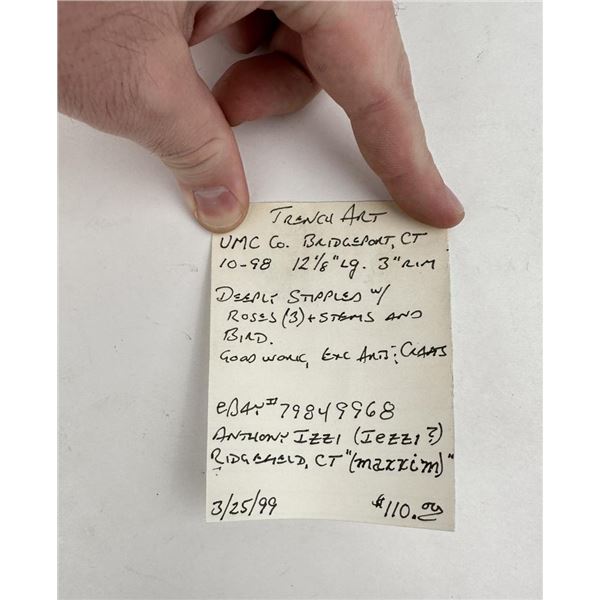 TRENCH ART
UMC CO. BRIDGEPORT, CT
10-98 12 1/8" LG. 3" RIM
DEEPLY STIPPLED W/
ROSES (3) + STEMS AND
BIRD.
GOOD WORK, EXC ARTS
eBAY # 79849968
ANTHONY IZZI (IEZZI?)
RIDGEFIELD, CT "(maxxim)"
3/25/99 $110.00